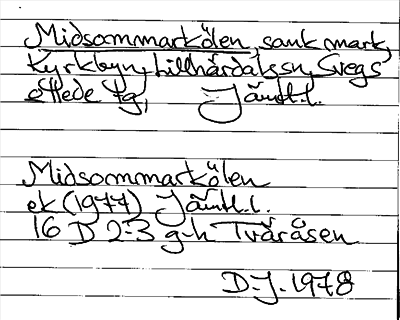 Midsommarkölen, sank mark,
Kyrkbyn, Lillhärdals sn, Svegs
o Hede tg, Jämtl.l.
Midsommarkölen
ek (1977) Jämtl.l.
16 D 2-3 g-h Tvåråsen
D.J. 1978